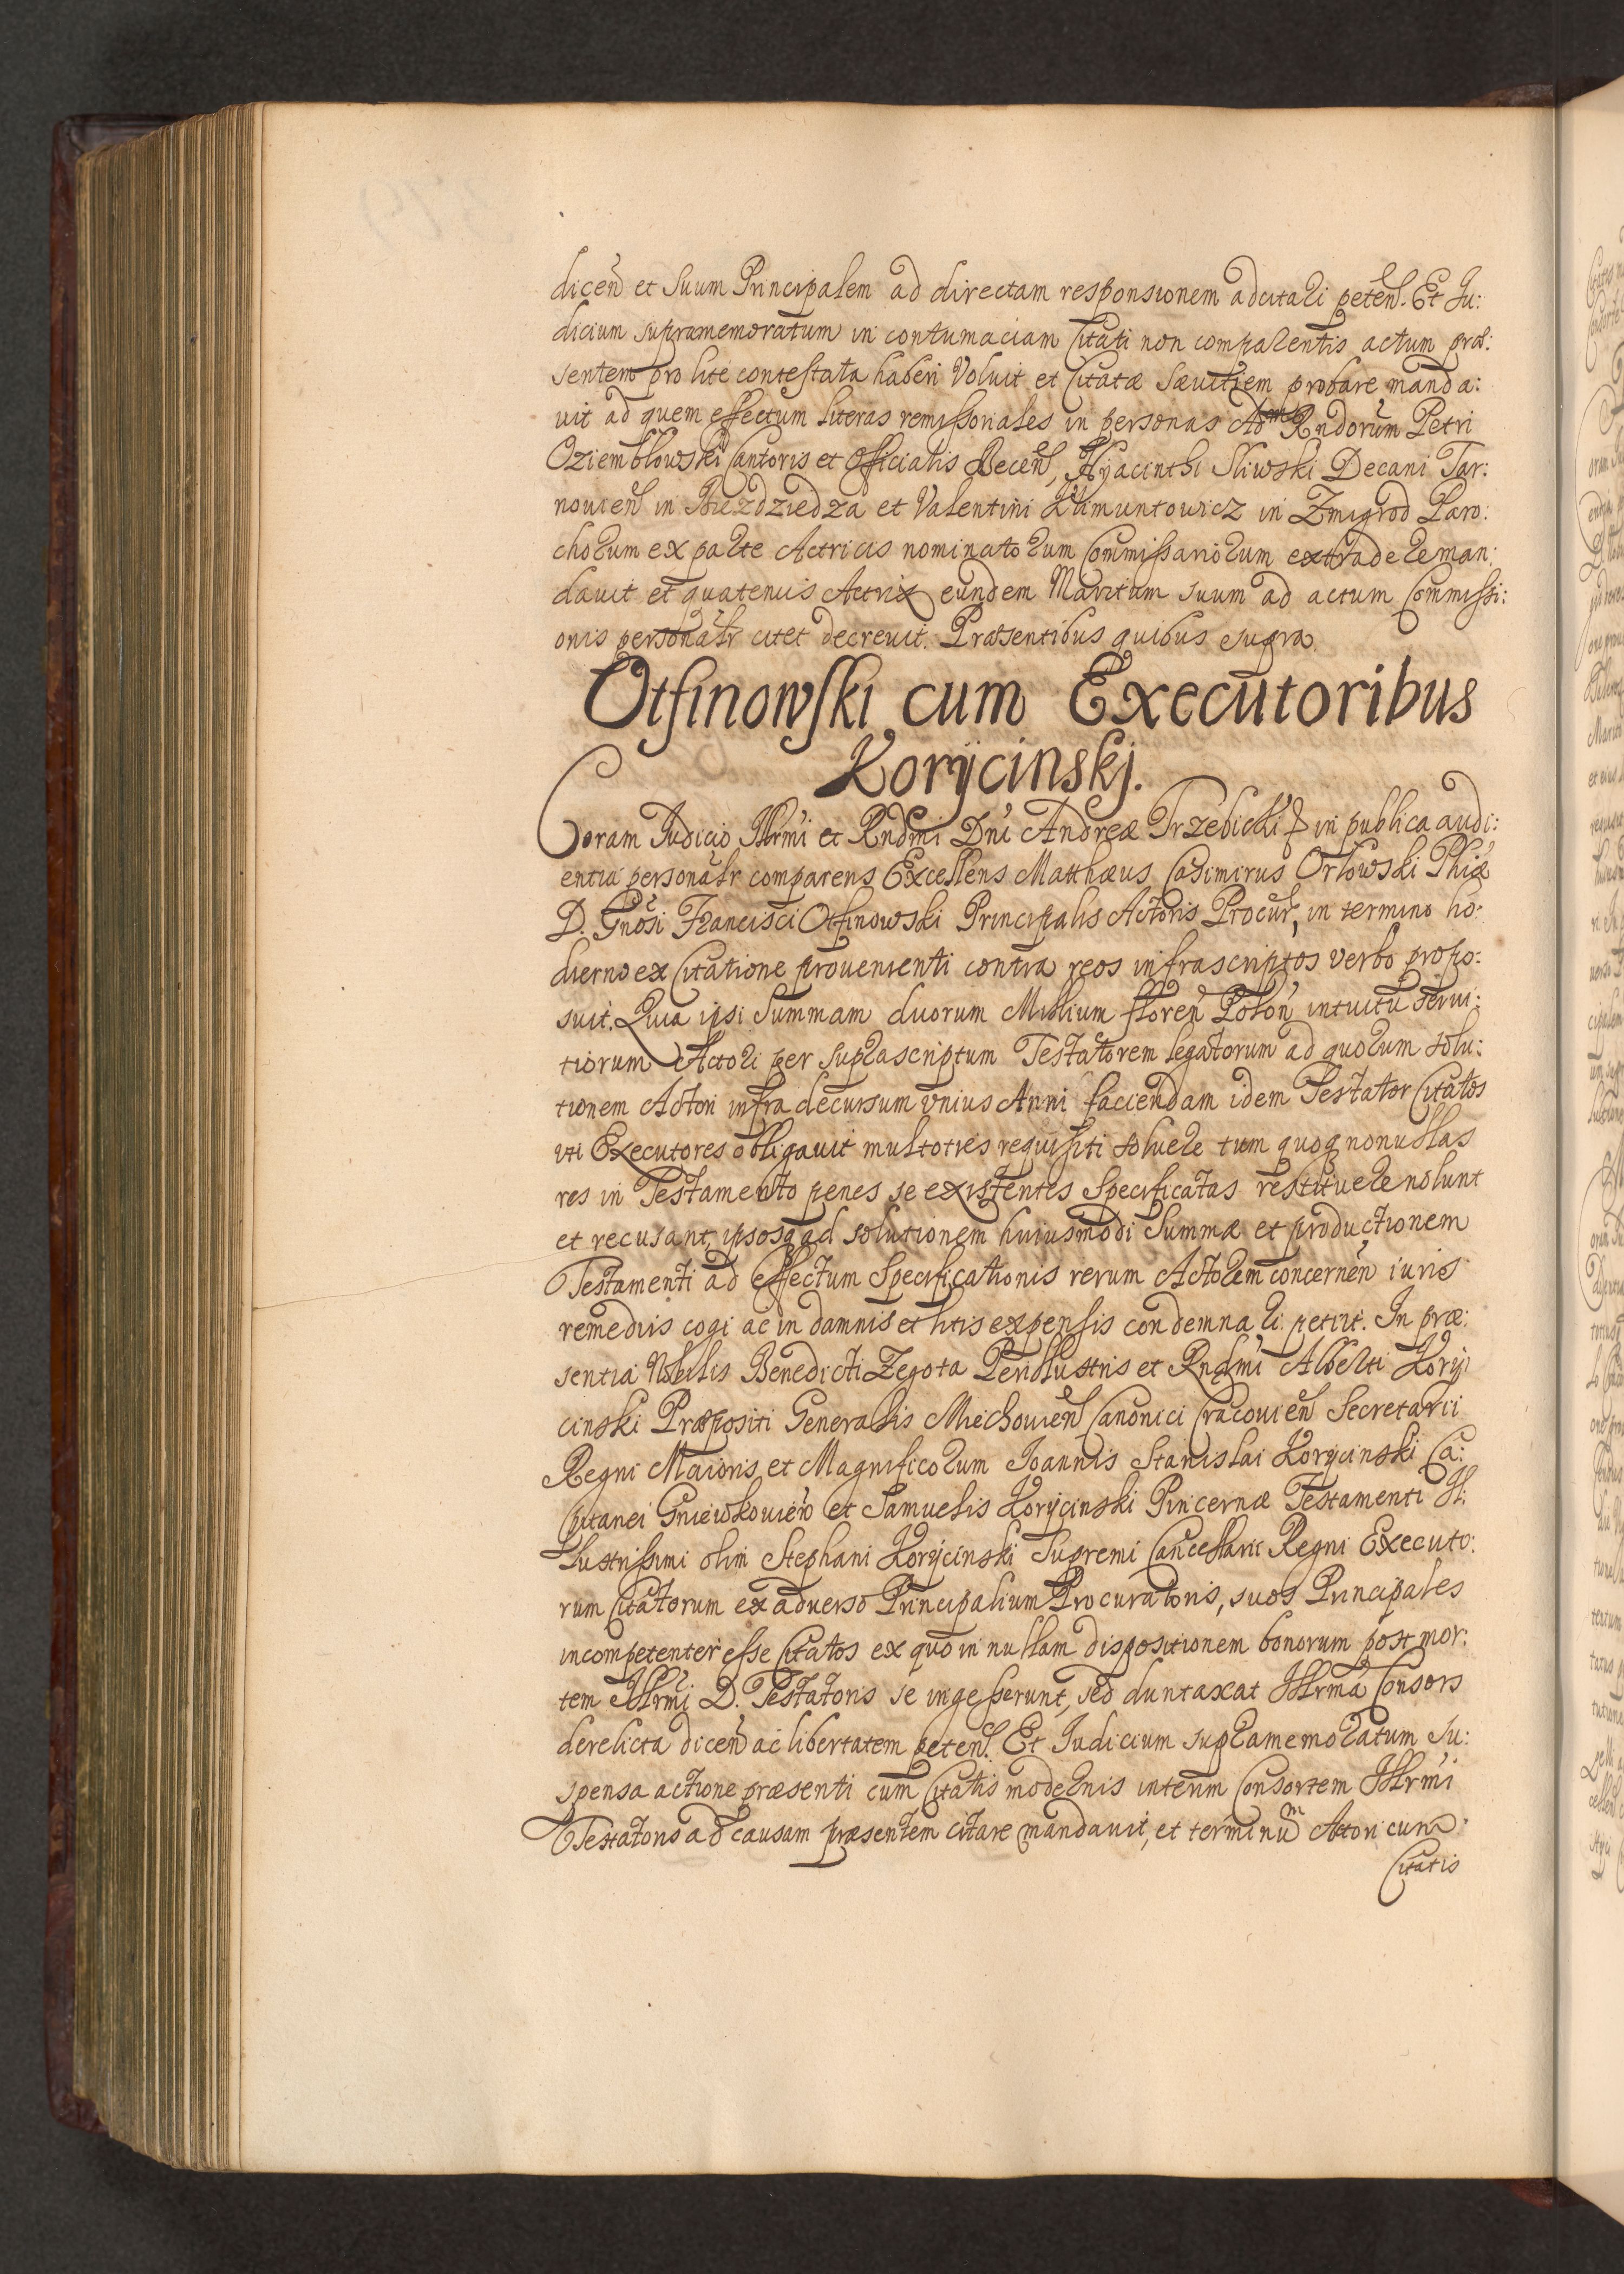 dicen̄ et Suum Principalem ad directam responsionem adcitari peten̄. Et Ju:
dicium supramemoratum in contumaciam Citati non comparentis actum præ:
sentem pro lite contestata haberi Voluit et Citatæ Sævitiem probare manda:
uit ad quem effectum literas remissoriales in personas Rndorum Petri
Oziembłowski Cantoris et Officialis Becen̄, Hyacinthi Sliwski Decani Tar:
nouien̄ in Biezdziedza et Valentini Klimuntowicz in Zmigrod Paro:
chorum ex parte Actricis nominatorum Commissariorum extradere man:
dauit et quatenus Actrix eundem Maritum suum ad actum Commissi:
onis personalr̄ citet decreuit. Præsentibus quibus supra.
Otfinowski cum Executoribus
Korycinskj.
Coram Judicio Illrmi et Rndmi Dni Andreæ Trzebicki & in publica audi:
entia personalr̄ comparens Excellens Matthæus Casimirus Orłowski Phiæ
D. Gnosi Francisci Otfinowski Principalis Actoris Procur̄, in termino ho:
dierno ex Citatione proueniente contra reos infrascriptos verbo propo:
suit. Quia ipsi Summam duorum Millium floren̄ Polon̄ intuitu serui:
tiorum Actori per suprascriptum Testatorem legatorum ad quorum solu:
tionem Actori infra decursum vnius Anni faciendam idem Testator Citatos
vti Executores obligauit multoties requisiti soluere tum quoq nonullas
res in Testamento penes se existentes Specificatas restituere nolunt
et recusant, ipsosq ad solutionem huiusmodi Summæ et productionem
Testamenti ad effectum Specificationis rerum Actorem concernen̄ iuris
remedijs cogi ac in damnis et litis expensis condemnari petijt. In præ:
sentia Nobilis Benedicti Zegota Perillustris et Rndmi Alberti Kory
cinski Præpositi Generalis Miechouien̄ Canonici Cracouien̄ Secretarii
Regni Maioris et Magnificorum Joannis Stanislai Korycinski Ca:
pitanei Gniewkouien̄ et Samuelis Korycinski Pincernæ Testamenti Il:
lustrissimi olim Stephani Korycinski Supremi Cancellarii Regni Executo:
rum Citatorum ex aduerso Principalium Procuratoris, suos Principales
incompetenter esse Citatos ex quo in nullam dispositionem bonorum post mor:
tem Illrmi D. Testatoris se ingesserunt, sed duntaxat Illrma Consors
derelicta dicen̄ ac libertatem peten̄. Et Judicium supramemoratum su:
spensa actione præsenti cum Citatis modernis interim Consortem Illrmi
Testatoris ad causam præsentem citare mandauit, et terminum Actori cum
Citatis